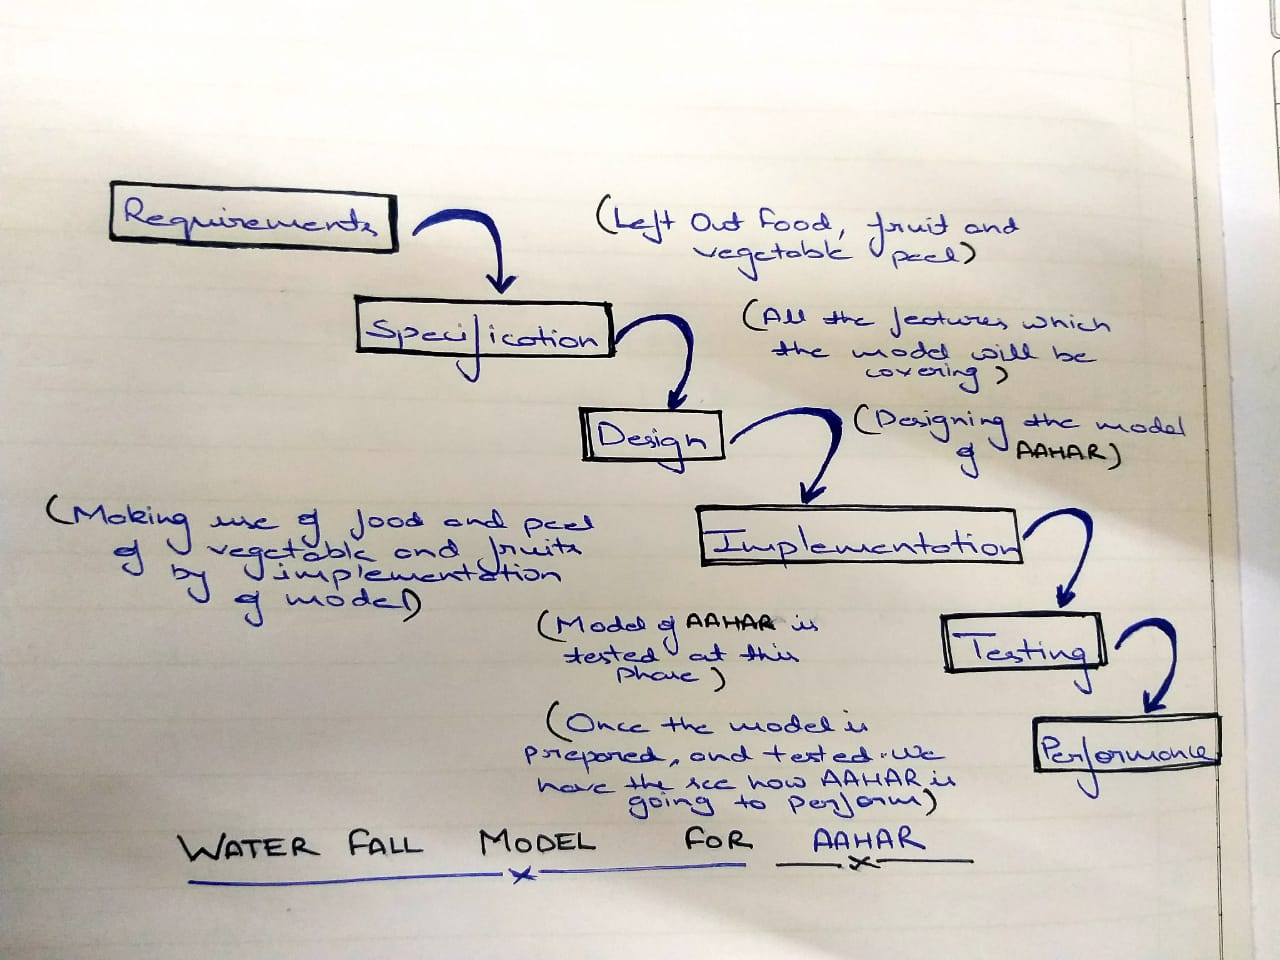 Requirements
(Left Out Food, fruit and
vegetable peel)
Specification
(All the features which
the model will be
covering)
Design
(Designing the model
of AAHAR)
Implementation
(Making use of food and peel
of vegetable and fruits
by implementation
of model)
Testing
(Model of AAHAR is
tested at this
phase)
Performance
(Once the model is
prepared, and tested. We
have the see how AAHAR is
going to perform)
WATER FALL MODEL FOR AAHAR